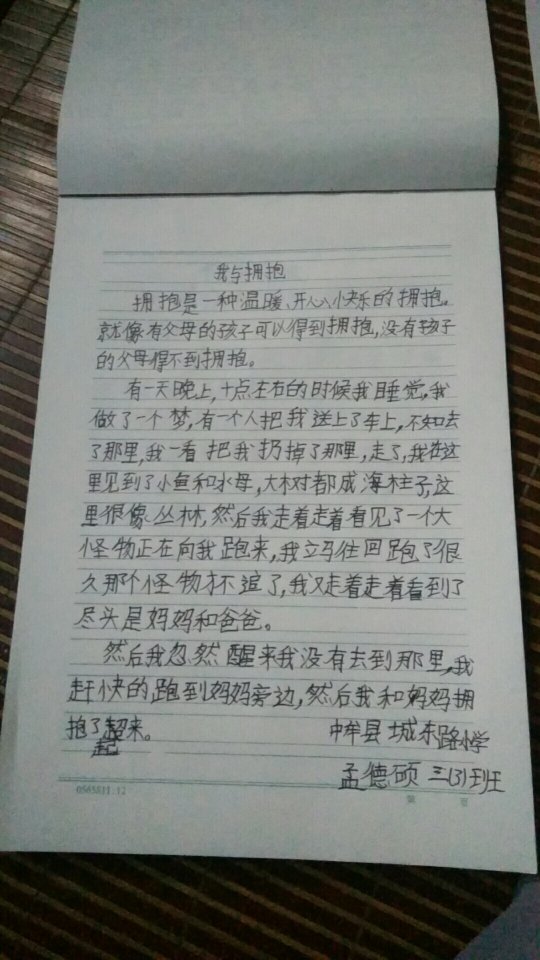 我与拥抱
拥抱是一种温暖、开心、快乐的拥抱。
就像有父母的孩子可以得到拥抱,没有孩子
的父母得不到拥抱。
有一天晚上,十点左右的时候我睡觉,我
做了一个梦,有一个人把我送上了车上,不知去
了那里,我一看把我扔掉了那里,走了,我在这
里见到了小鱼和水母,大树都成海柱子,这
里很像丛林,然后我走着走着看见了一个大
怪物正在向我跑来,我立马往回跑了很
久那个怪物才不追了,我又走着走着看到了
尽头是妈妈和爸爸。
然后我忽然醒来我没有去到那里,我
赶快的,跑到妈妈旁边,然后我和妈妈拥
抱了起来。
中牟县城东路小学
孟德硕 三(3)班
0565811.12
第 页